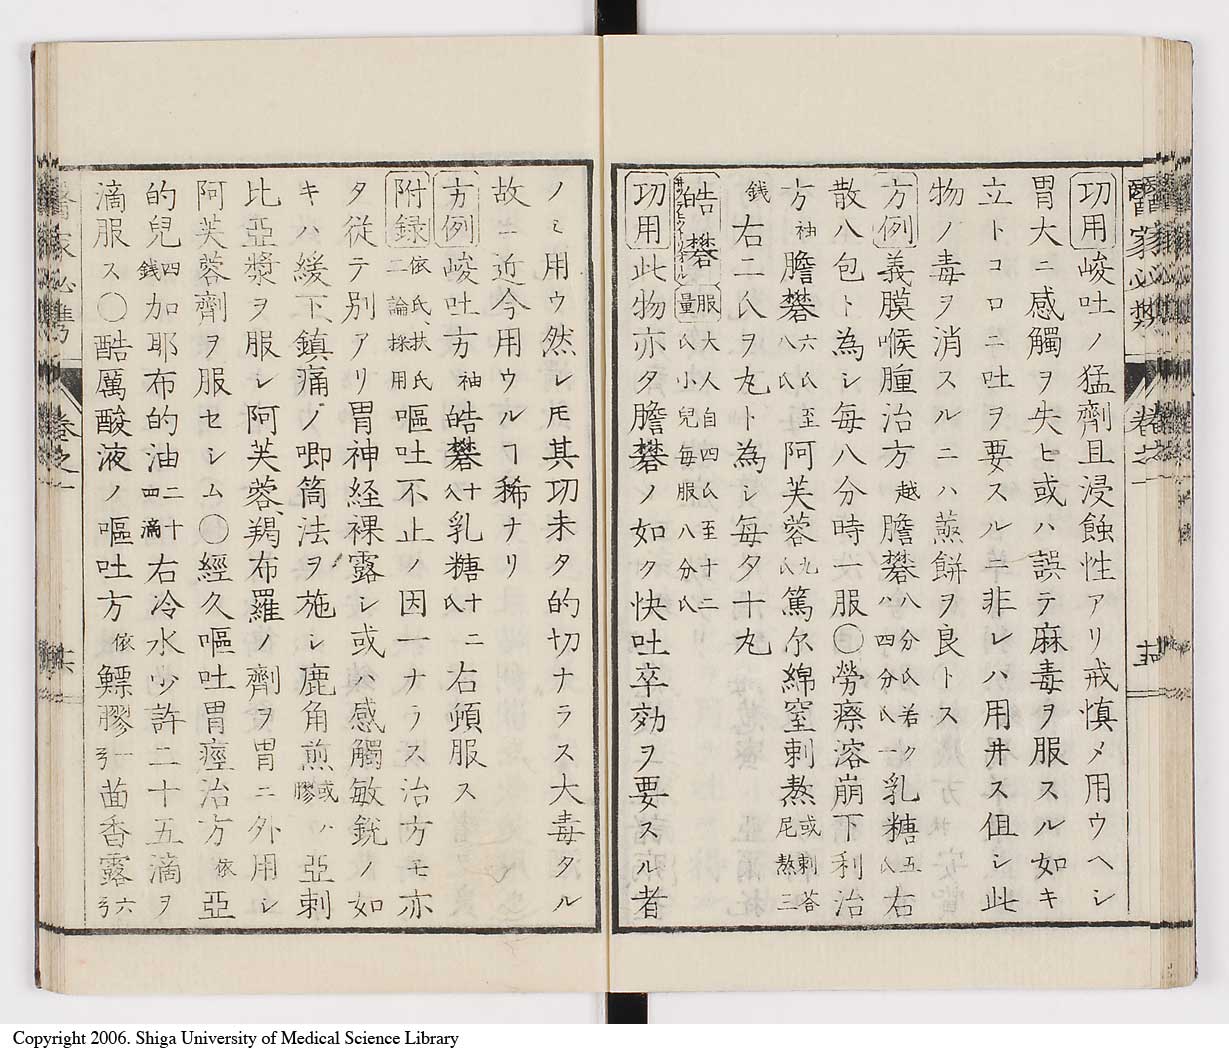 醫家必携 卷之一 十五
功用 峻吐ノ猛劑且浸蝕性アリ戒慎〆用ウヘシ
胃大ニ感觸ヲ失ヒ或ハ誤テ麻毒ヲ服スル如キ
立トコロニ吐ヲ要スル非レハ用井ス但シ此
物ノ毒ヲ消スルニハ蒸餅ヲ良トス
方例 義膜喉腫治方 越 膽礬 八分氏若クハ四分氏一 乳糖 五氏 右
散八包ト為シ每八分時一服〇勞瘵溶崩下利治
方 袖 膽礬 六氏至八氏 阿芙蓉 九氏 篤尔綿窒刺熬 或刺荅尾熬二
錢 右二氏ヲ丸ト為シ每夕十丸
皓礬 服量 大人自四氏至十二氏小兒每服八分氏
功用 此物亦タ膽礬ノ如ク快吐卒効ヲ要スル者
ノミ用ウ然レ𪜈其功未タ的切ナラス大毒タル
故ニ近今用ウルヿ稀ナリ
方例 峻吐方 袖 皓礬 十八 乳糖 十二氏 右頓服ス
附録 依氏、扶氏二論採用 嘔吐不止ノ因一ナラス治方モ亦
タ従テ別アリ胃神経裸露シ或ハ感觸敏銳ノ如
キハ緩下、鎮痛ノ唧筒法ヲ施シ鹿角煎 或膠 ハ亞剌
比亞漿ヲ服シ阿芙蓉、羯布羅ノ劑ヲ胃ニ外用シ
阿芙蓉劑ヲ服セシム〇經久嘔吐胃痙治方 依 亞
的兒 四錢 加耶布的油 二十四滴 右冷水少許二十五滴ヲ
滴服ス〇酷厲酸液ノ嘔吐方 依 鰾膠 一弓 茴香露 六弓
醫家必携 卷之一
Copyright 2006. Shiga University of Medical Science Library